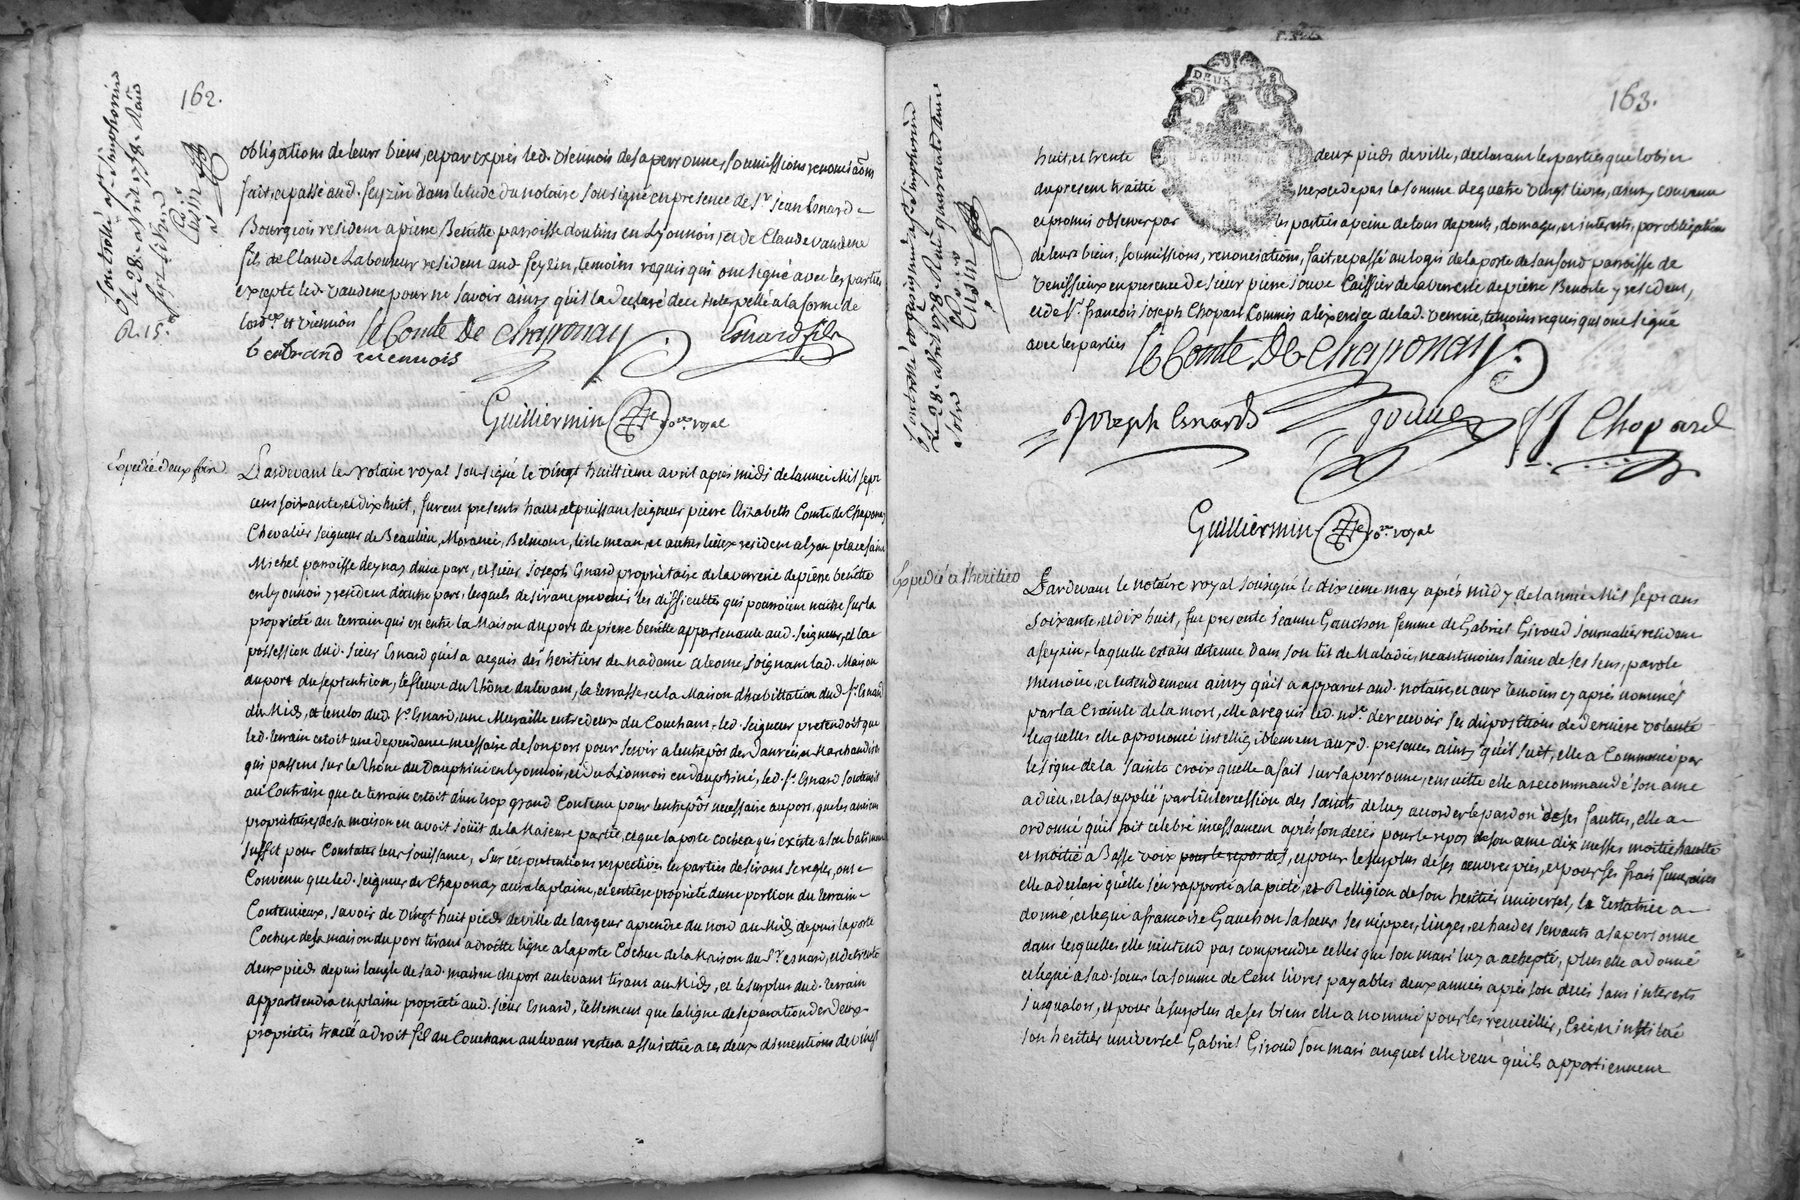 162.
obligations de leurs biens, et par exprès led. Viennois de sa personne, soumissions renonciaõns
fait et passé aud. feyzin dans letude du notaire soussigné en presence de Sr. jean Esnard
Bourgeois resident a pierre Benitte parroisse doulins en Lyonnois, et de Claude vaudene
fils de Claude Laboureur resident aud. feyzin, temoins requis qui ont signé avec les parties
excepté led. vaudene pour ne savoir ainsy qu'il la declaré de ce interpellé a la forme de
lordce. et viennois le Comte De Chaponay Esnard fils
bertrand viennois
Guilliermin nore. royal
Controllé a st. simphorien
le 28. avril 1778. Reçu
sept livres
Expedié deux fois
Pardevant le Notaire royal soussigné le vingt huittieme avril après midi de lannée Mil sept
cent soixante, et dix huit, furent presents haut, et puissant seigneur pierre Elizabeth Comte de Chaponay
Chevalier seigneur de Beaulieu, Morancé, Belmont, lisle mean, et autres lieux resident a lyon place saint
Michel parroisse deynay dune part, et sieur Joseph Esnard propriètaire de la verrerie de pierre benitte
en lyonnois y resident dautre part, lesquels desirant prevenir les difficultés qui pourroient naitre sur la
proprieté du terrain qui est entre la Maison du port de pierre benitte appartenante aud. seigneur, et la
possession dud. sieur Esnard quil a acquis des heritiers de Madame cleome, joignant lad. Maison
du port du septentrion, le fleuve du Rhône du levant, la terrasse et la Maison d'habittation dud. Sr. Esnard
du Midi, et lenclos dud. Sr. Esnard, une Muraille entredeux du Couchant, led. seigneur pretendoit que
led. terrain etoit une dependance necessaire de son port pour servir a lentrepôs des danrées, et Marchandises
qui passent sur le Rhône du Dauphiné en lyonnois, et du Lionnois en dauphiné, led. Sr. Esnard soutenoit
au Contraire que ce terrain estoit d'un trop grand Contenu pour lentrepôs necessaire au port, que les anciens
propriètaires de sa maison en avoit joüit de la Majeure partie, et que la porte cochere qui existe a son batiment
suffit pour Constater leur jouissance, sur ces pretentions respectives les parties desirant se regler, ont
Convenu que led. seigneur de Chaponay aura la plaine, et entiere proprieté dune portion du terrain
Contentieux, savoir de vingt huit pieds de ville de largeur a prendre du nord au Midi depuis la porte
Cochere de sa maison du port tirant a droitte ligne a la porte Cochere de la Maison du Sr. esnard, et de trente
deux pieds depuis langle de sad. maison du port au levant tirant au Midi, et le surplus dud. terrain
appartiendra en plaine proprieté aud. sieur Esnard, tellement que la ligne de separation des deux
proprietés tracé a droit fil du Couchant au levant restera assujettie a ces deux dimentions de vingt
163.
DEUX SOLS
huit, et trente deux pieds de ville, declarant les parties que lobjet
du present traitté nexcede pas la somme de quatre vingt livres, ainsy convenu
et promis observer par les parties a peine de tous depents, domages, et interests, par obligation
de leurs biens, soumissions, renonciations, fait, et passé au logis de la porte de sanfond parroisse de
Venissieux en presence de sieur pierre Jouve Caissier de la verrerie de pierre Benitte y resident,
et de Sr. françois Joseph Chopard Commis a lexercice de lad. verrerie, temoins requis qui ont signé
avec les parties le Comte De Chaponay
Joseph Esnard Jouve fJ Chopard
Guilliermin nore. royal
Expedié a l'heritier
Pardevant le notaire royal soussigné le dixieme may après midy de lannée Mil sept cent
soixante, et dix huit, fut presente Jeanne Gauchon femme de Gabriel Giroud journalier resident
a feyzin, laquelle estant detenue dans son lit de Maladie, neantmoins saine de ses sens, parole
memoire, et entendement ainsy qu'il a apparu aud. notaire, et aux temoins cy après nommés
par la Crainte de la mort, elle a requis led. nore. de recevoir ses dispositions de derniere volonté
lesquelles elle a prononcé intelligiblement auxd. presences ainsy qu'il suit, elle a Commencé par
le signe de la sainte croix quelle a fait sur sa personne, ensuitte elle a recommandé son ame
a dieu, et la supplié par l'intercession des saints de luy accorder le pardon de ses fauttes, elle a
ordonné qu'il soit celebré incessament après son deces pour le repos de son ame dix messes moitié haulte
et moitié a Basse voix pour le repos des, et pour le surplus de ses œuvres pies, et pour ses frais funeraires
elle a declaré qu'elle s'en rapporté a la pieté, et Relligion de son heritier universel, la testatrice a
donné, et legué a francoise Gauchon sa sœur ses nippes, linges, et hardes servants a sa personne
dans lesquelles elle n'entend pas comprendre celles que son mari luy a achepté, plus elle a donné
et legué a sad. sœur la somme de Cent livres payables deux années après son deces sans interests
jusqualors, et pour le surplus de ses biens elle a nommé pour les recueillir, Créé, et institué
son heritier universel Gabriel Giroud son mari auquel elle veut qu'ils appartiennent